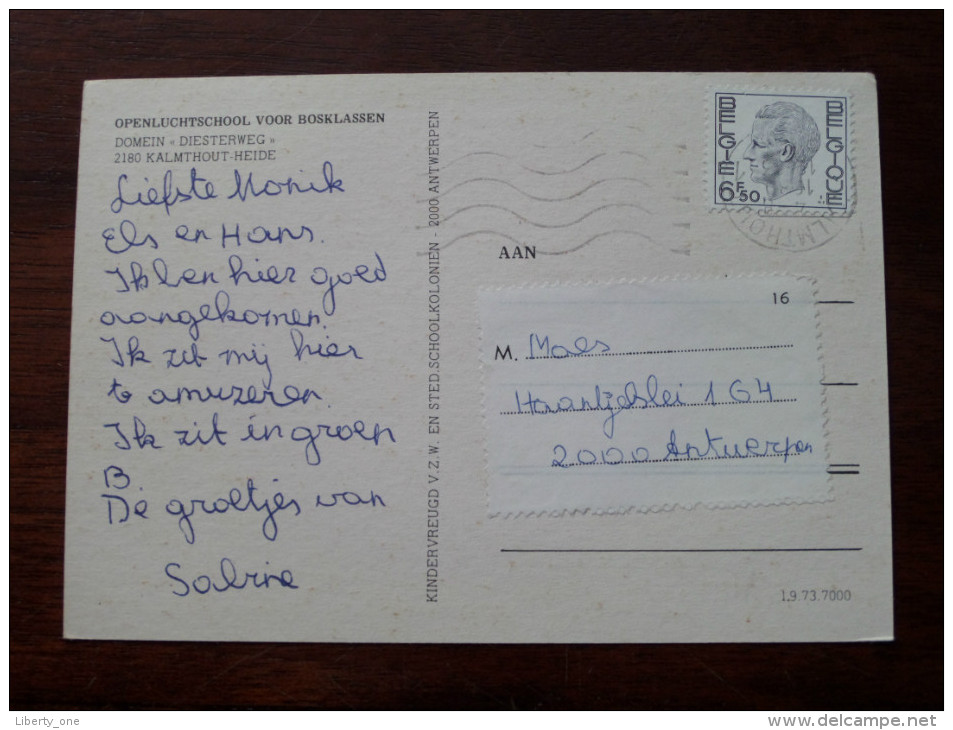 OPENLUCHTSCHOOL VOOR BOSKLASSEN
DOMEIN « DIESTERWEG »
2180 KALMTHOUT-HEIDE
Liefste Monik
Els en Hans.
Ik ben hier goed
aangekomen.
Ik zit mij hier
te amuzeren.
Ik zit in groep
B.
De groetjes van
Sabine
KINDERVREUGD V.Z.W. EN STED. SCHOOLKOLONIEN - 2000 ANTWERPEN
BELGIE
BELGIQUE
6F50
LMTHO
AAN
16
M. Maes
Haantjeslei 164
2000 Antwerpen
1.9.73.7000
Liberty_one
delcampe.net